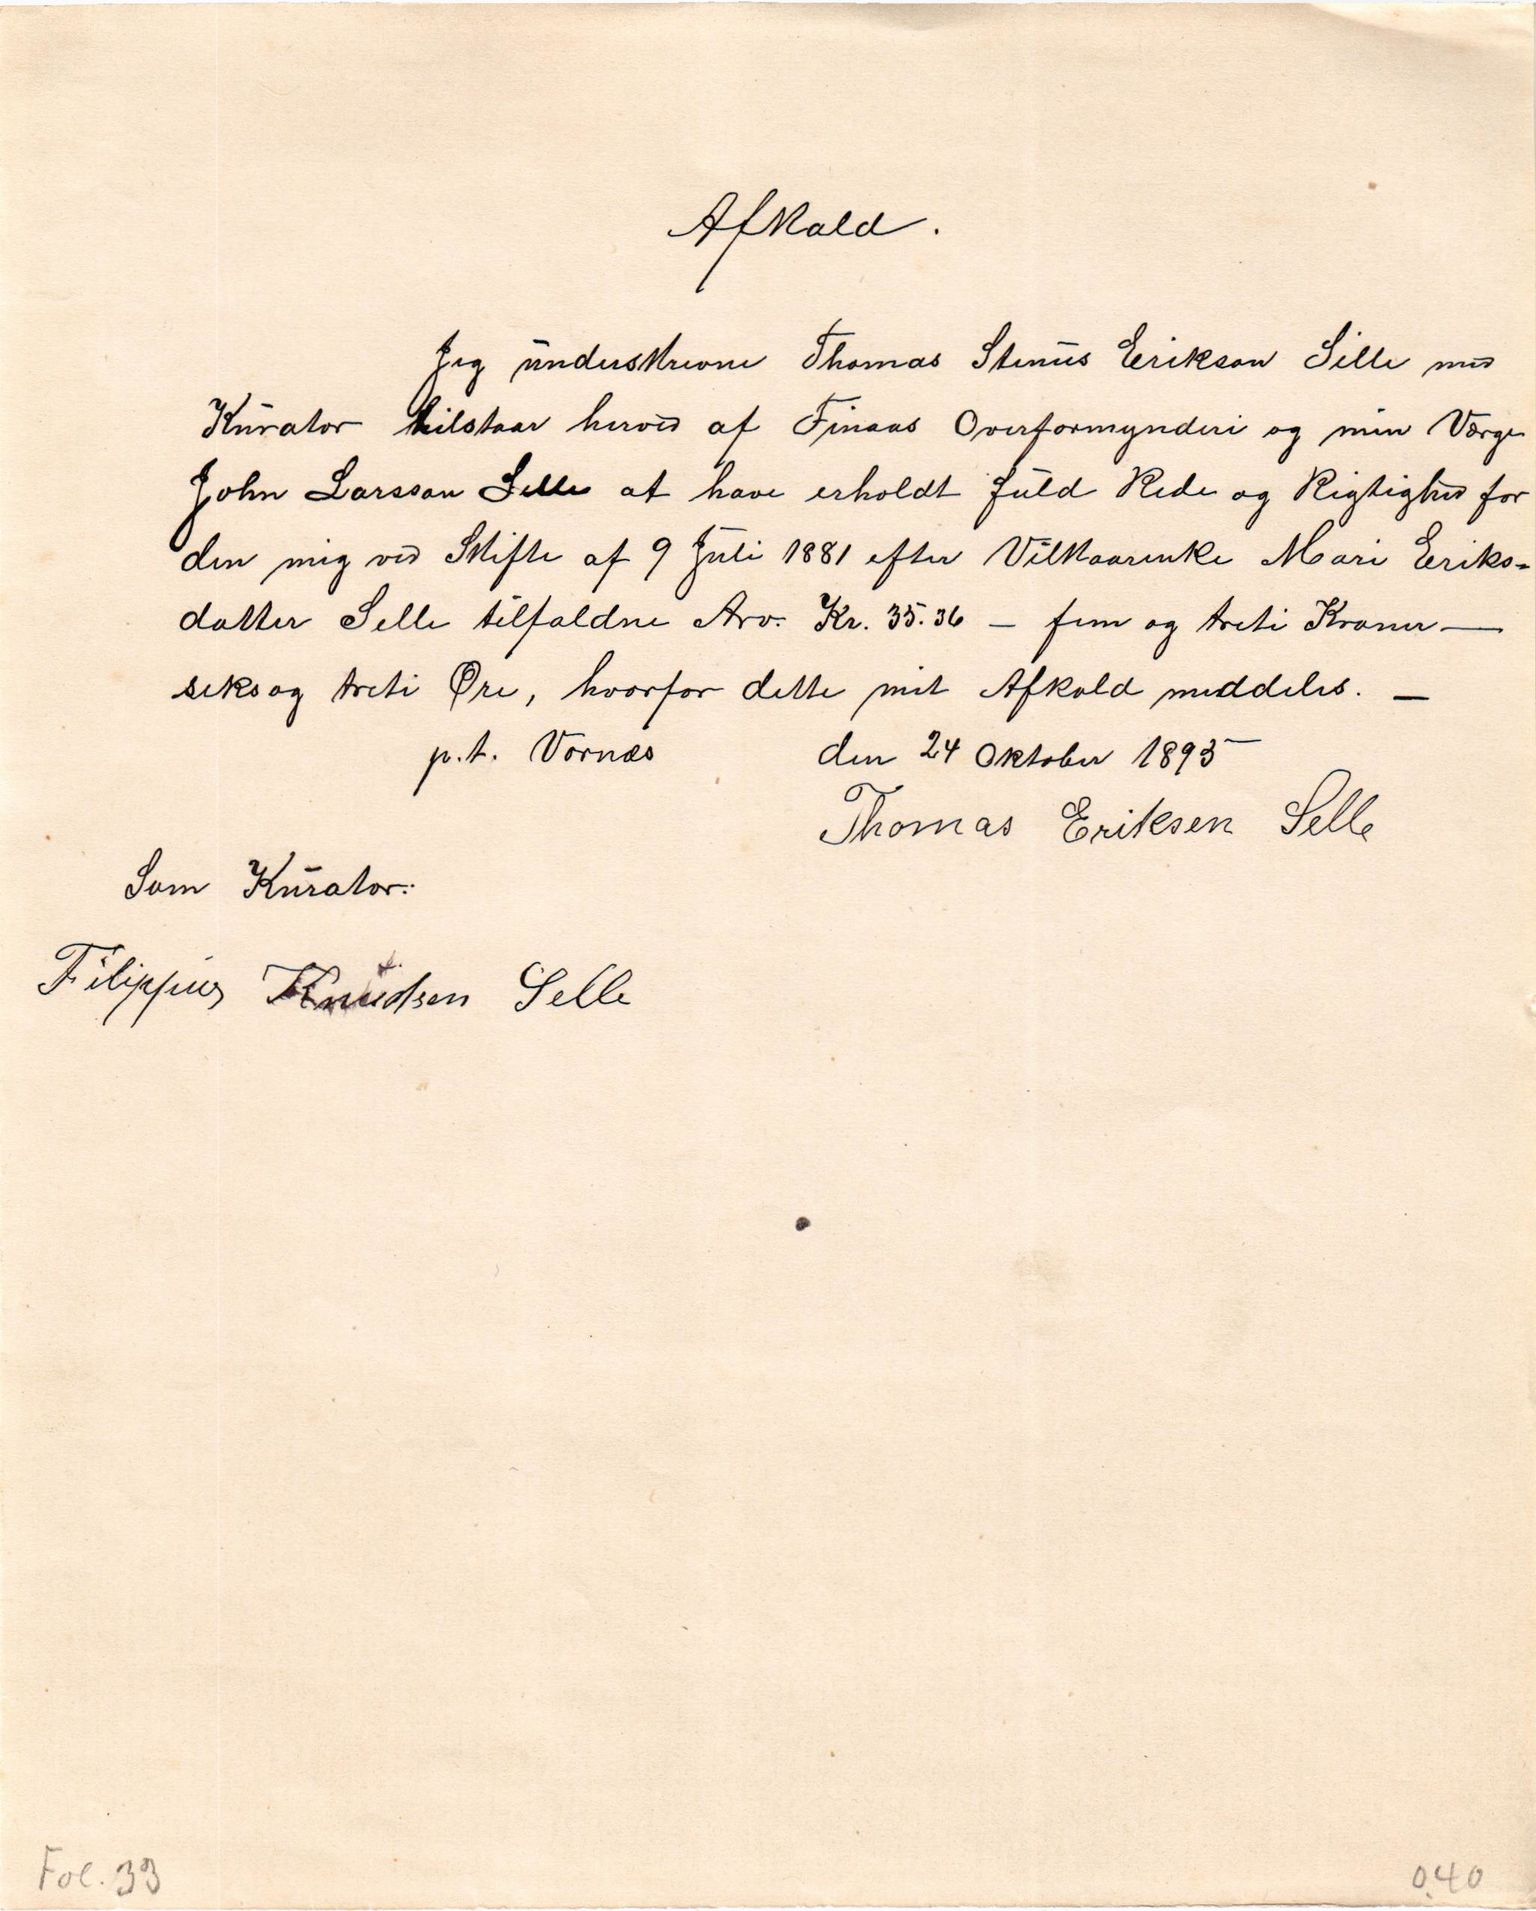 Afkald.
Jeg underskrevne Thomas Stenius Erikson Selle med
Kurator tilstaar herved af Finaas Overformynderi og min Værge
John Larsson Selle at have erholdt fuld Rede og Rigtighed for
den mig ved Skifte af 9 Juli 1881 efter Vilkaarenke Mari Eriks-
datter Selle tilfaldne Arv. Kr. 35.36 — fem og treti Kroner —
seks og treti Øre, hvorfor dette mit Afkald meddeles. —
p.t. Vornæs den 24 Oktober 1895
Thomas Eriksen Selle
Som Kurator:
Filippus Knudsen Selle
Fol. 33
0.40